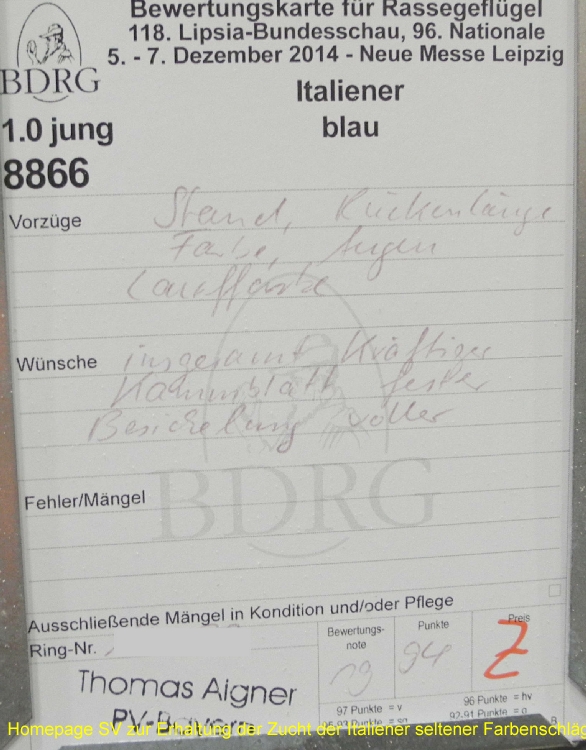 Bewertungskarte für Rassegeflügel
118. Lipsia-Bundesschau, 96. Nationale
5. - 7. Dezember 2014 - Neue Messe Leipzig
BDRG
Italiener
1.0 jung
blau
8866
Vorzüge Stand, Rückenlänge
Farbe, Augen
Lauffarbe
Wünsche insgesamt kräftiger
Kammblatt fester
Besichelung voller
BDRG
Fehler/Mängel
Ausschließende Mängel in Kondition und/oder Pflege
Ring-Nr.
Bewertungs-
note
Punkte
Preis
94
Z
Thomas Aigner
97 Punkte = v
96 Punkte = hv
92-91 Punkte = g
Homepage SV zur Erhaltung der Zucht der Italiener seltener Farbenschlä